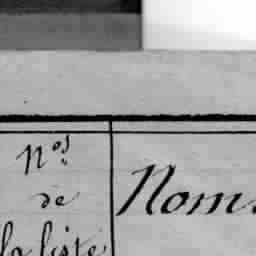 Nos
de
la liste
Nom